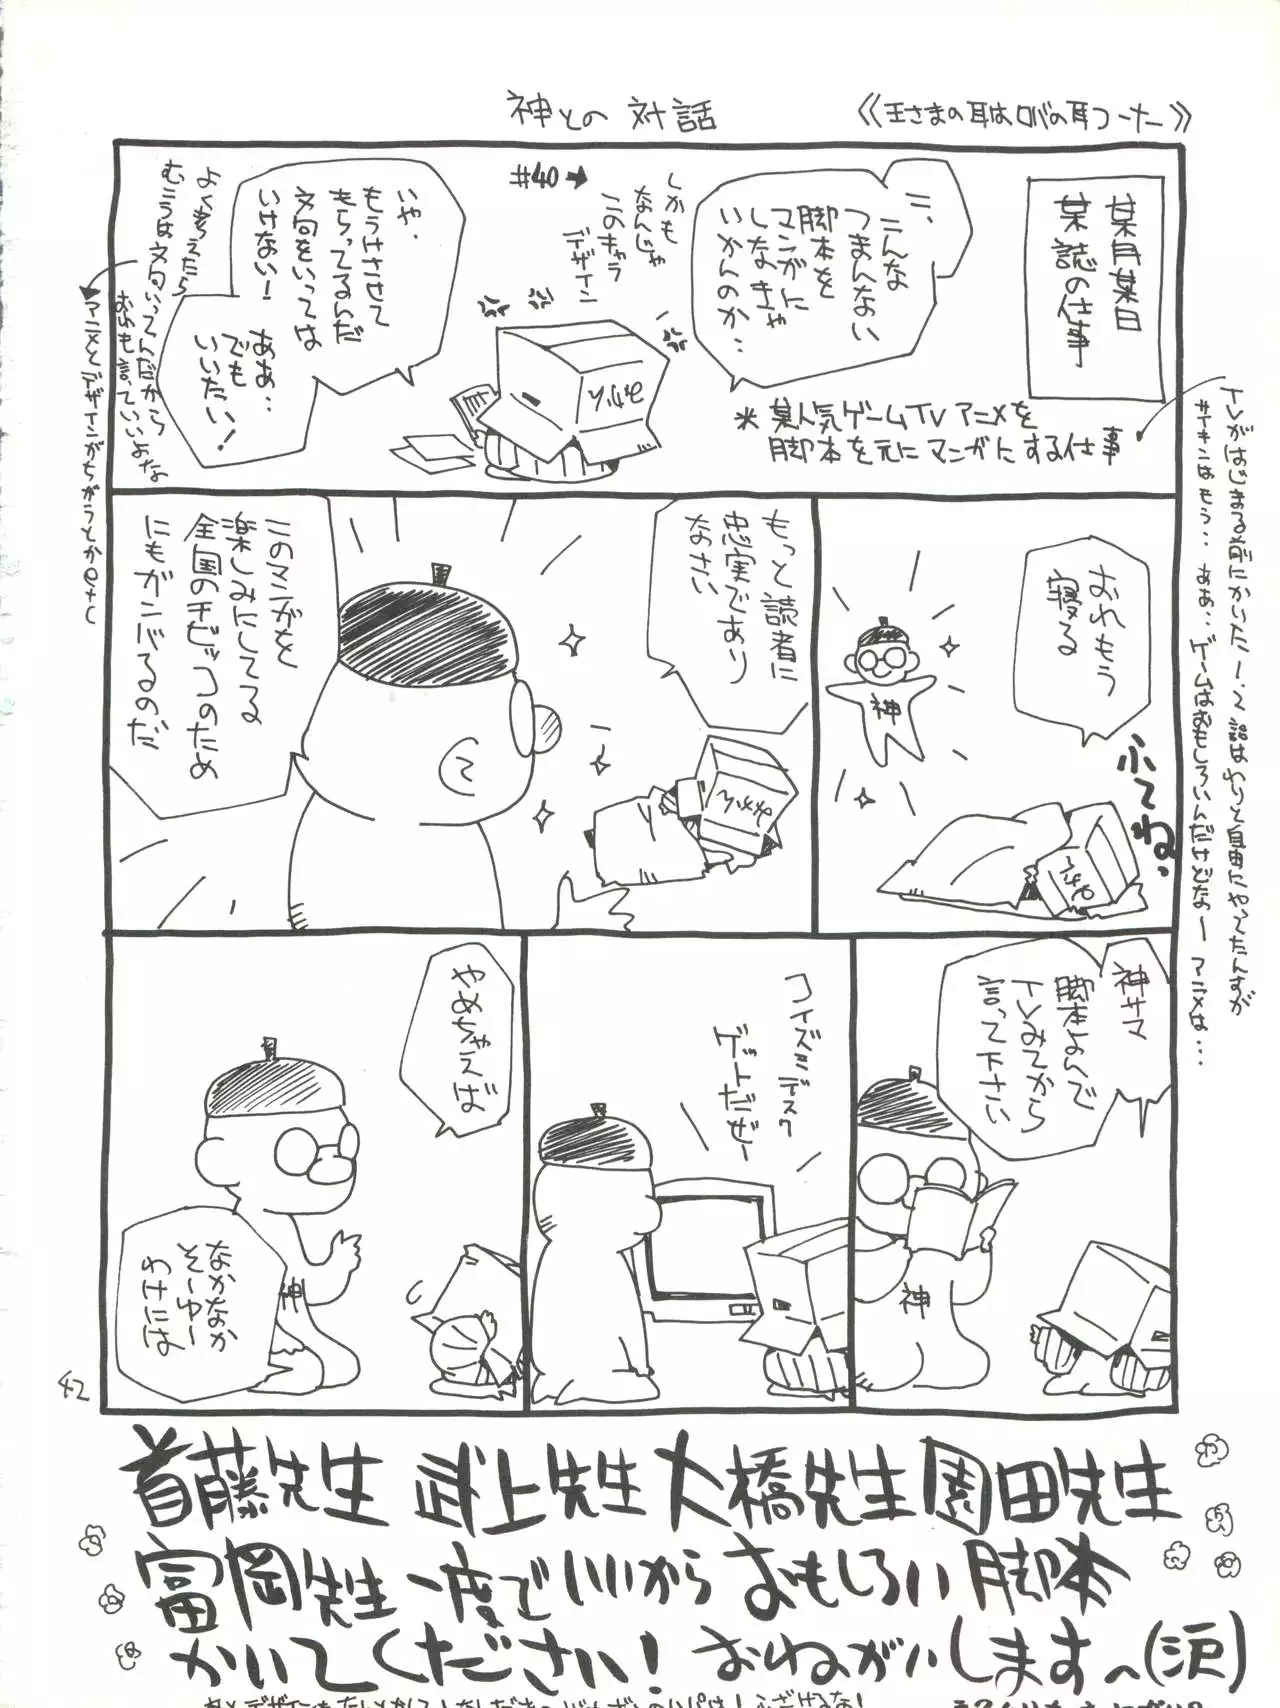 神との対話
《王さまの耳はロバの耳コーナー》
某月某日
某誌の仕事
こ、
こんな
つまんない
脚本を
マンガに
しなきゃ
いかんのか‥
しかも
なんじゃ
このキャラ
デザイン
#40→
いや、
もうけさせて
もらってるんだ
文句をいっては
いけない!
ああ‥
でも
いいたい!
よく考えたら
むこうは文句いってんだから
おれも言っていいよな
アニメとデザインがちがうとかetc
*某人気ゲームTVアニメを
脚本を元にマンガにする仕事
TVがはじまる前にかいた1、2話はわりと自由にやってたんすが
サイキンはもう‥ああ‥ゲームはおもしろいんだけどなー アニメは…
おれもう
寝る
神
ふてね。
もっと読者に
忠実であり
なさい
このマンガを
楽しみにしてる
全国のチビッコのため
にもガンバるのだ
神サマ
脚本よんで
TVみてから
言って下さい
神
コイズミデスク
ゲットだぜー
やめちゃえば
神
なかなか
そーゆー
わけには
42
首藤先生 武上先生 大橋先生 園田先生
富岡先生 一度でいいから おもしろい脚本
かいてください! おねがいします〜(沢)